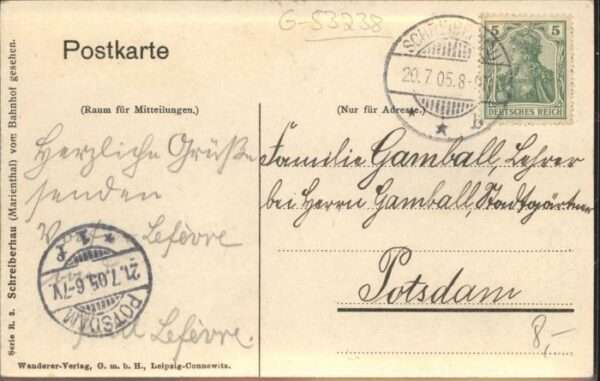 G-53238
Postkarte
SCHREIBERHAU
20.7.05.8-9
* * b
5 5
DEUTSCHES REICH
(Raum für Mitteilungen.)
(Nur für Adresse.)
Herzliche Grüße
senden
Lefèvre
Lefèvre.
Familie Gamball, Lehrer
bei Herrn Gamball, Stadtgärtner
Potsdam
8,-
POTSDAM
21.7.05.6-7V.
* 1 *
Serie R. 2. Schreiberhau (Marienthal) vom Bahnhof gesehen.
Wanderer-Verlag, G. m. b. H., Leipzig-Connewitz.